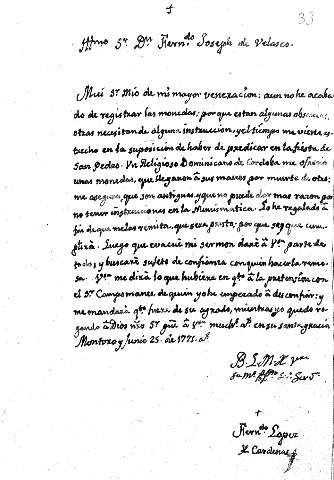 †
33
Yllmo Sr Dn Ferndo Joseph de Velasco.
Mui Sr Mio de mi mayor veneracion: aun no he acaba
do de registrar las monedas; porque estan algunas obscuras,
otras necesitan de alguna instruccion, y el tiempo me viene es
trecho en la suposicion de haber de predicar en la fiesta de
San Pedro. Un Religioso Dominicano de Cordoba me ofrecio
unas monedas, que llegaron a sus manos por muerte de otro;
me asegura, que son antiguas, y que no puede dar mas razon por
no tener instrucciones en la Numismatica. Lo he regalado a
fin de que me las remita, que sera presto; por que se que cum-
plirà. Luego que evacue mi sermon darè à V parte de
todo; y buscarè sujeto de confianza con quien hacer la reme-
sa. V me dirà lo que hubiere en à la pretension con
el Sr Campomanes de quien yo he empezado à desconfiar; y
me mandarà fuere de su agrado, mientras yo quedo ro
gando à Dios nro Sr à V muchs as en su santa gracia
Montoro y Junio 25 de 1771. as
B. L. M. de V
su mas
†
Ferndo Lopez
de Cardenas